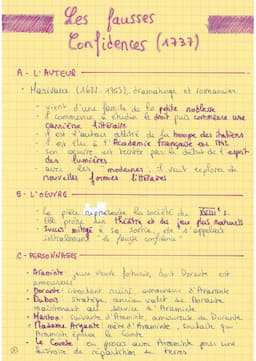 Les fausses
Confidences (1737)
A - L'AUTEUR
• Marivaux (1688 - 1763), dramaturge et romancier
- vient d'une famille de la petite noblesse
- il commence à étudier le droit puis commence une
carrière littéraire
- il est l'auteur attitré de la troupe des italiens
- il est élu à l'Académie Française en 1742
- son œuvre est teintée par le début de l'esprit
des lumières
- avec les modernes, il veut explorer de
nouvelles formes littéraires
B - L'ŒUVRE
- La pièce représente la société du XVIII° s.
- Elle prône un théâtre et des jeux plus naturels
- Succès mitigé à sa sortie, elle s'appelait
initialement la fausse confidence
C - PERSONNAGES
• Araminte : jeune veuve fortunée, dont Dorante est
amoureux
• Dorante : intendant ruiné, amoureux d'Araminte
• Dubois : stratège, ancien valet de Dorante
maintenant au service d'Araminte
• Marton : suivante d'Araminte, amoureuse de Dorante
• Madame Argante : mère d'Araminte, souhaite que
Araminte épouse le Comte
• Le Comte : en procès avec Araminte pour une
histoire de répartition de terres